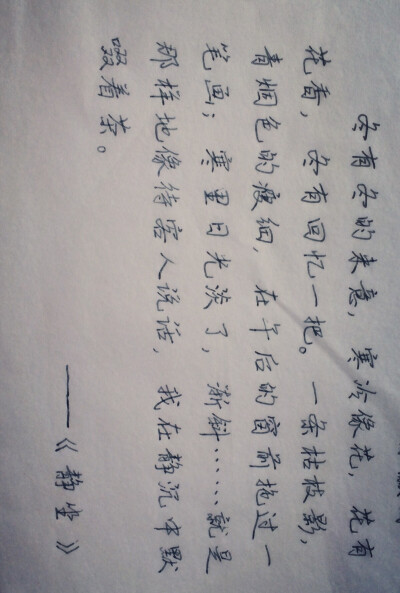 冬有冬的来意，寒冷像花，花有
花香，冬有回忆一把。一条枯枝影，
青烟色的瘦细，在午后的窗前拖过一
笔画；寒里日光淡了，渐斜……就是
那样地像待客人说话，我在静沉中默
啜着茶。
——《静坐》